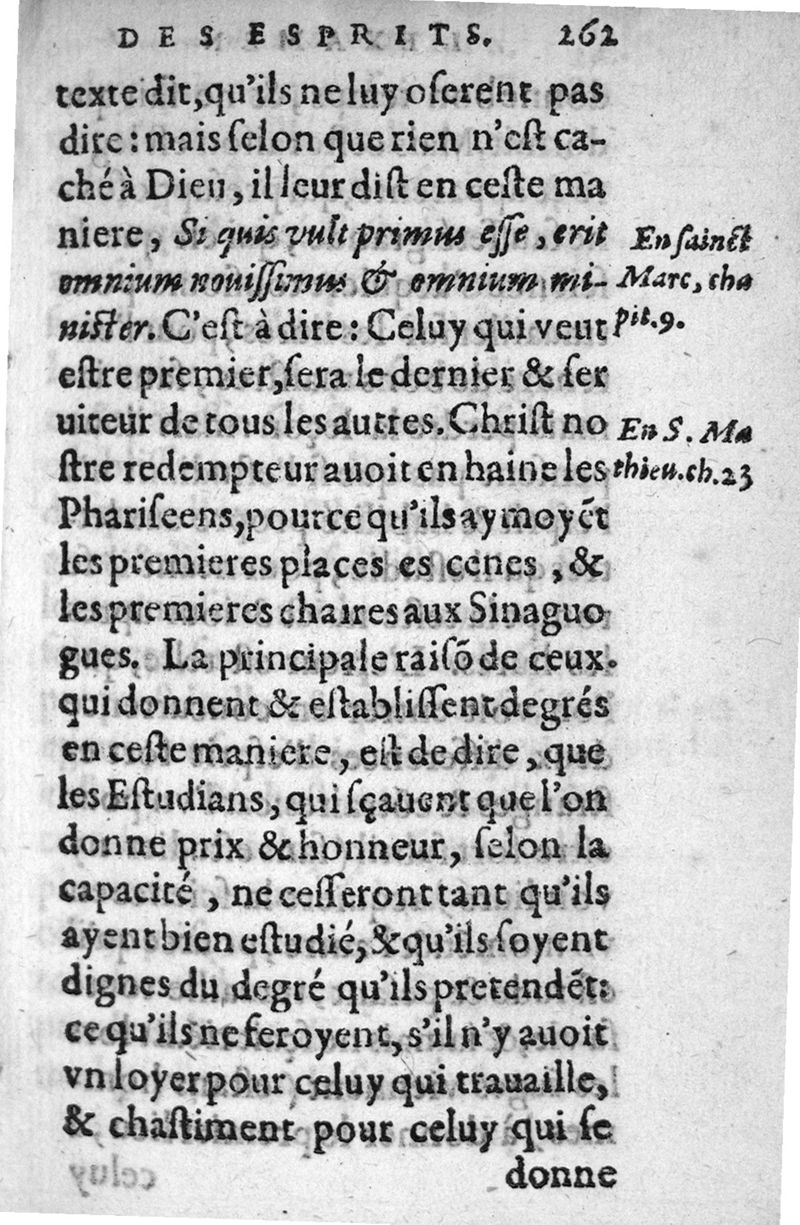 DES ESPRITS. 262
texte dit, qu'ils ne luy oſerent pas
dire : mais ſelon que rien n'eſt ca-
ché à Dieu, il leur diſt en ceſte ma
niere, Si quis vult primus eſſe, erit
En ſainct
omnium nouiſſimus & omnium mi-
Marc, cha
niſter. C'eſt à dire : Celuy qui veut
pit. 9.
eſtre premier, ſera le dernier & ſer
uiteur de tous les autres. Chriſt no
En S. Ma
ſtre redempteur auoit en haine les
thieu. ch. 23
Phariſeens, pource qu'ils aymoyẽt
les premieres places es cenes, &
les premieres chaires aux Sinaguo
gues. La principale raiſõ de ceux
qui donnent & eſtabliſſent degrés
en ceſte maniere, eſt de dire, que
les Eſtudians, qui ſçauent que l'on
donne prix & honneur, ſelon la
capacité, ne ceſſeront tant qu'ils
ayent bien eſtudié, & qu'ils ſoyent
dignes du degré qu'ils pretendẽt:
ce qu'ils ne feroyent, s'il n'y auoit
vn loyer pour celuy qui trauaille,
& chaſtiment pour celuy qui ſe
donne